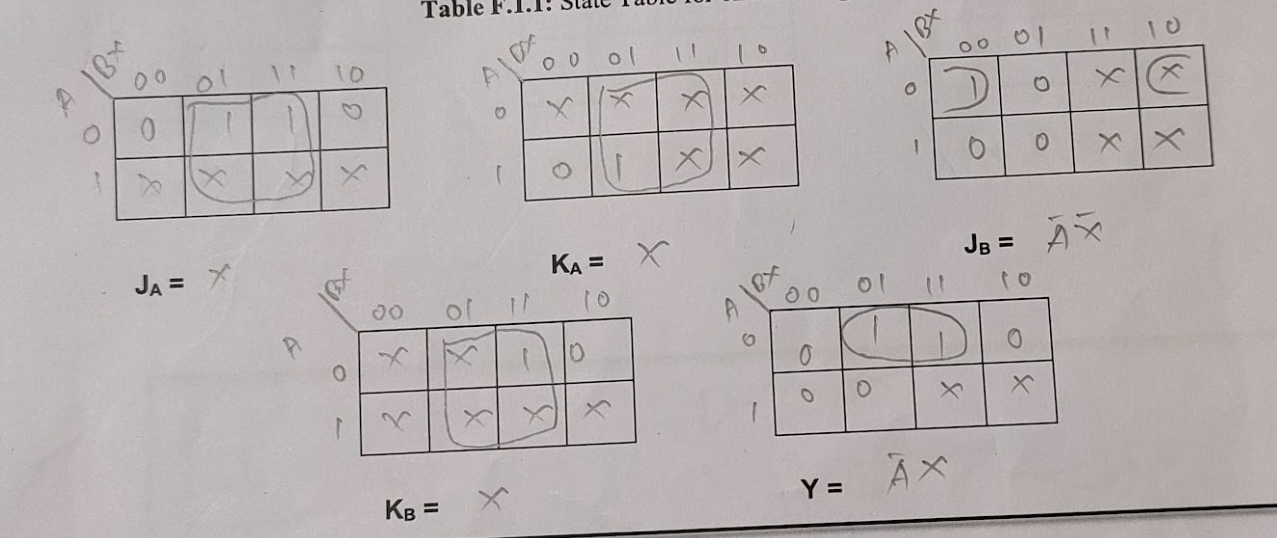 Table F.1.1: State Table for
A \ Bx 00 01 11 10
0 0 1 1 0
1 x x x x
J_A = x
A \ Bx 00 01 11 10
0 x x x x
1 0 1 x x
K_A = x
A \ Bx 00 01 11 10
0 1 0 x x
1 0 0 x x
J_B = Ā x̄
A \ Bx 00 01 11 10
0 x x 1 0
1 x x x x
K_B = x
A \ Bx 00 01 11 10
0 0 1 1 0
1 0 0 x x
Y = Ā x